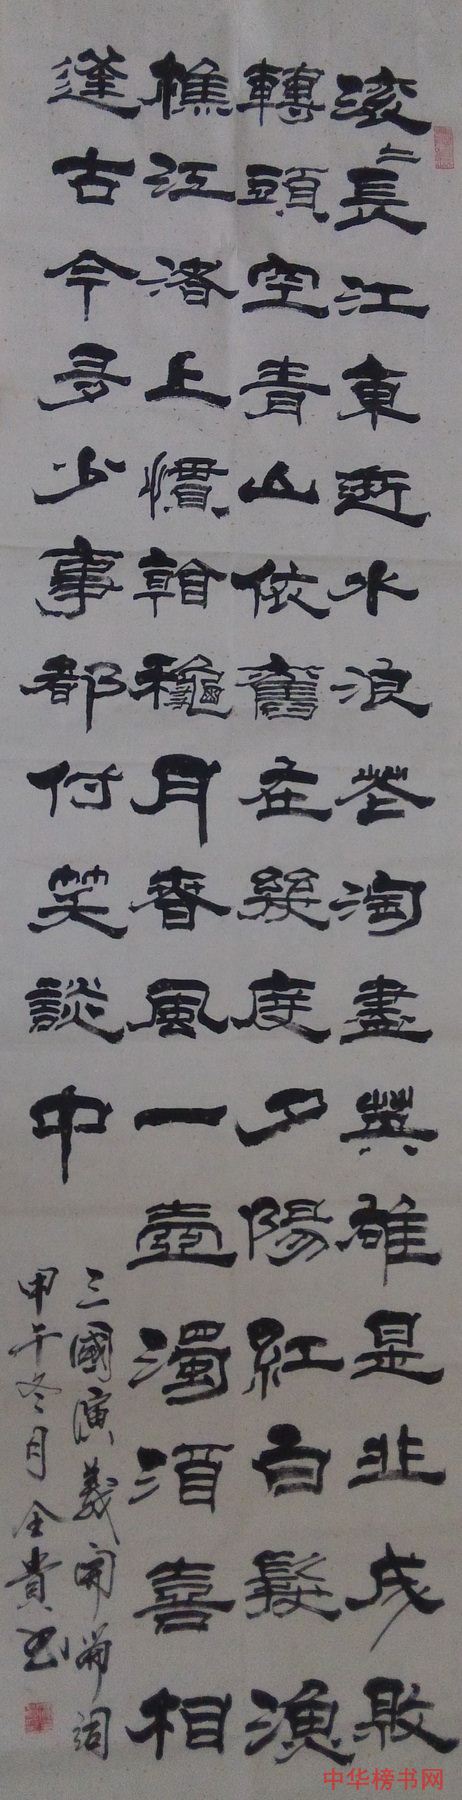 滚〻長江東逝水浪花淘盡英雄是非成敗
轉頭空青山依舊在幾度夕陽紅白髮漁
樵江渚上慣看龝月春風一壺濁酒喜相
逢古今多少事都付笑談中
三國演義開篇词
甲午冬月全貴书
中华榜书网